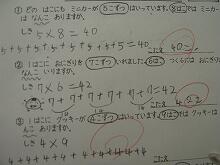 ① どの はこにも ミニカーが 5こずつ はいっています。8はこでは ミニカー
は なんこ ありますか。
しき 5×8=40
5+5+5+5+5+5+5+5=40 40こ
② 1はこに おにぎりを 7こずつ いれました。6はこ つくるには おにぎり
は なんこ いりますか。
しき 7×6=42
7+7+7+7+7+7=42
こたえ
③ 1はこに クッキーが 4こずつ はいっています。9はこでは クッキーは
なんこ ありますか。
しき 4×9
4+4+4+4+4+4
こたえ